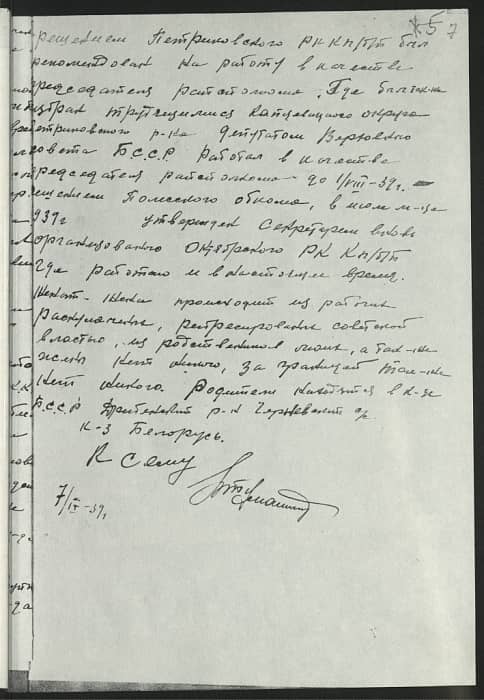 К5 7
решением Петриковского РК КП/б/Б был
рекомендован на работу в качестве
председателя райисполкома, где был так-же
избран трудящимися Копцевицкого округа
Петриковского р-на депутатом Верховного
Совета Б.С.С.Р. Работал в качестве
председателя райисполкома до 1/VIII-39г.
решением Полесского обкома, в июле м-це
939г утвержден Секретарем вновь
организованого Октябрского РК КП/б/Б
где работаю и в настоящем время.
Женат. Жена происходит из рабочих
раскулаченых, репресированых советской
властью, из родственников моих, а так-же
жены нет никого, за границей так-же
нет никого. Родители находятся в к-зе
Б.С.С.Р р-н с/с
к-з Белорусь.
К сему
7/IX-39г.